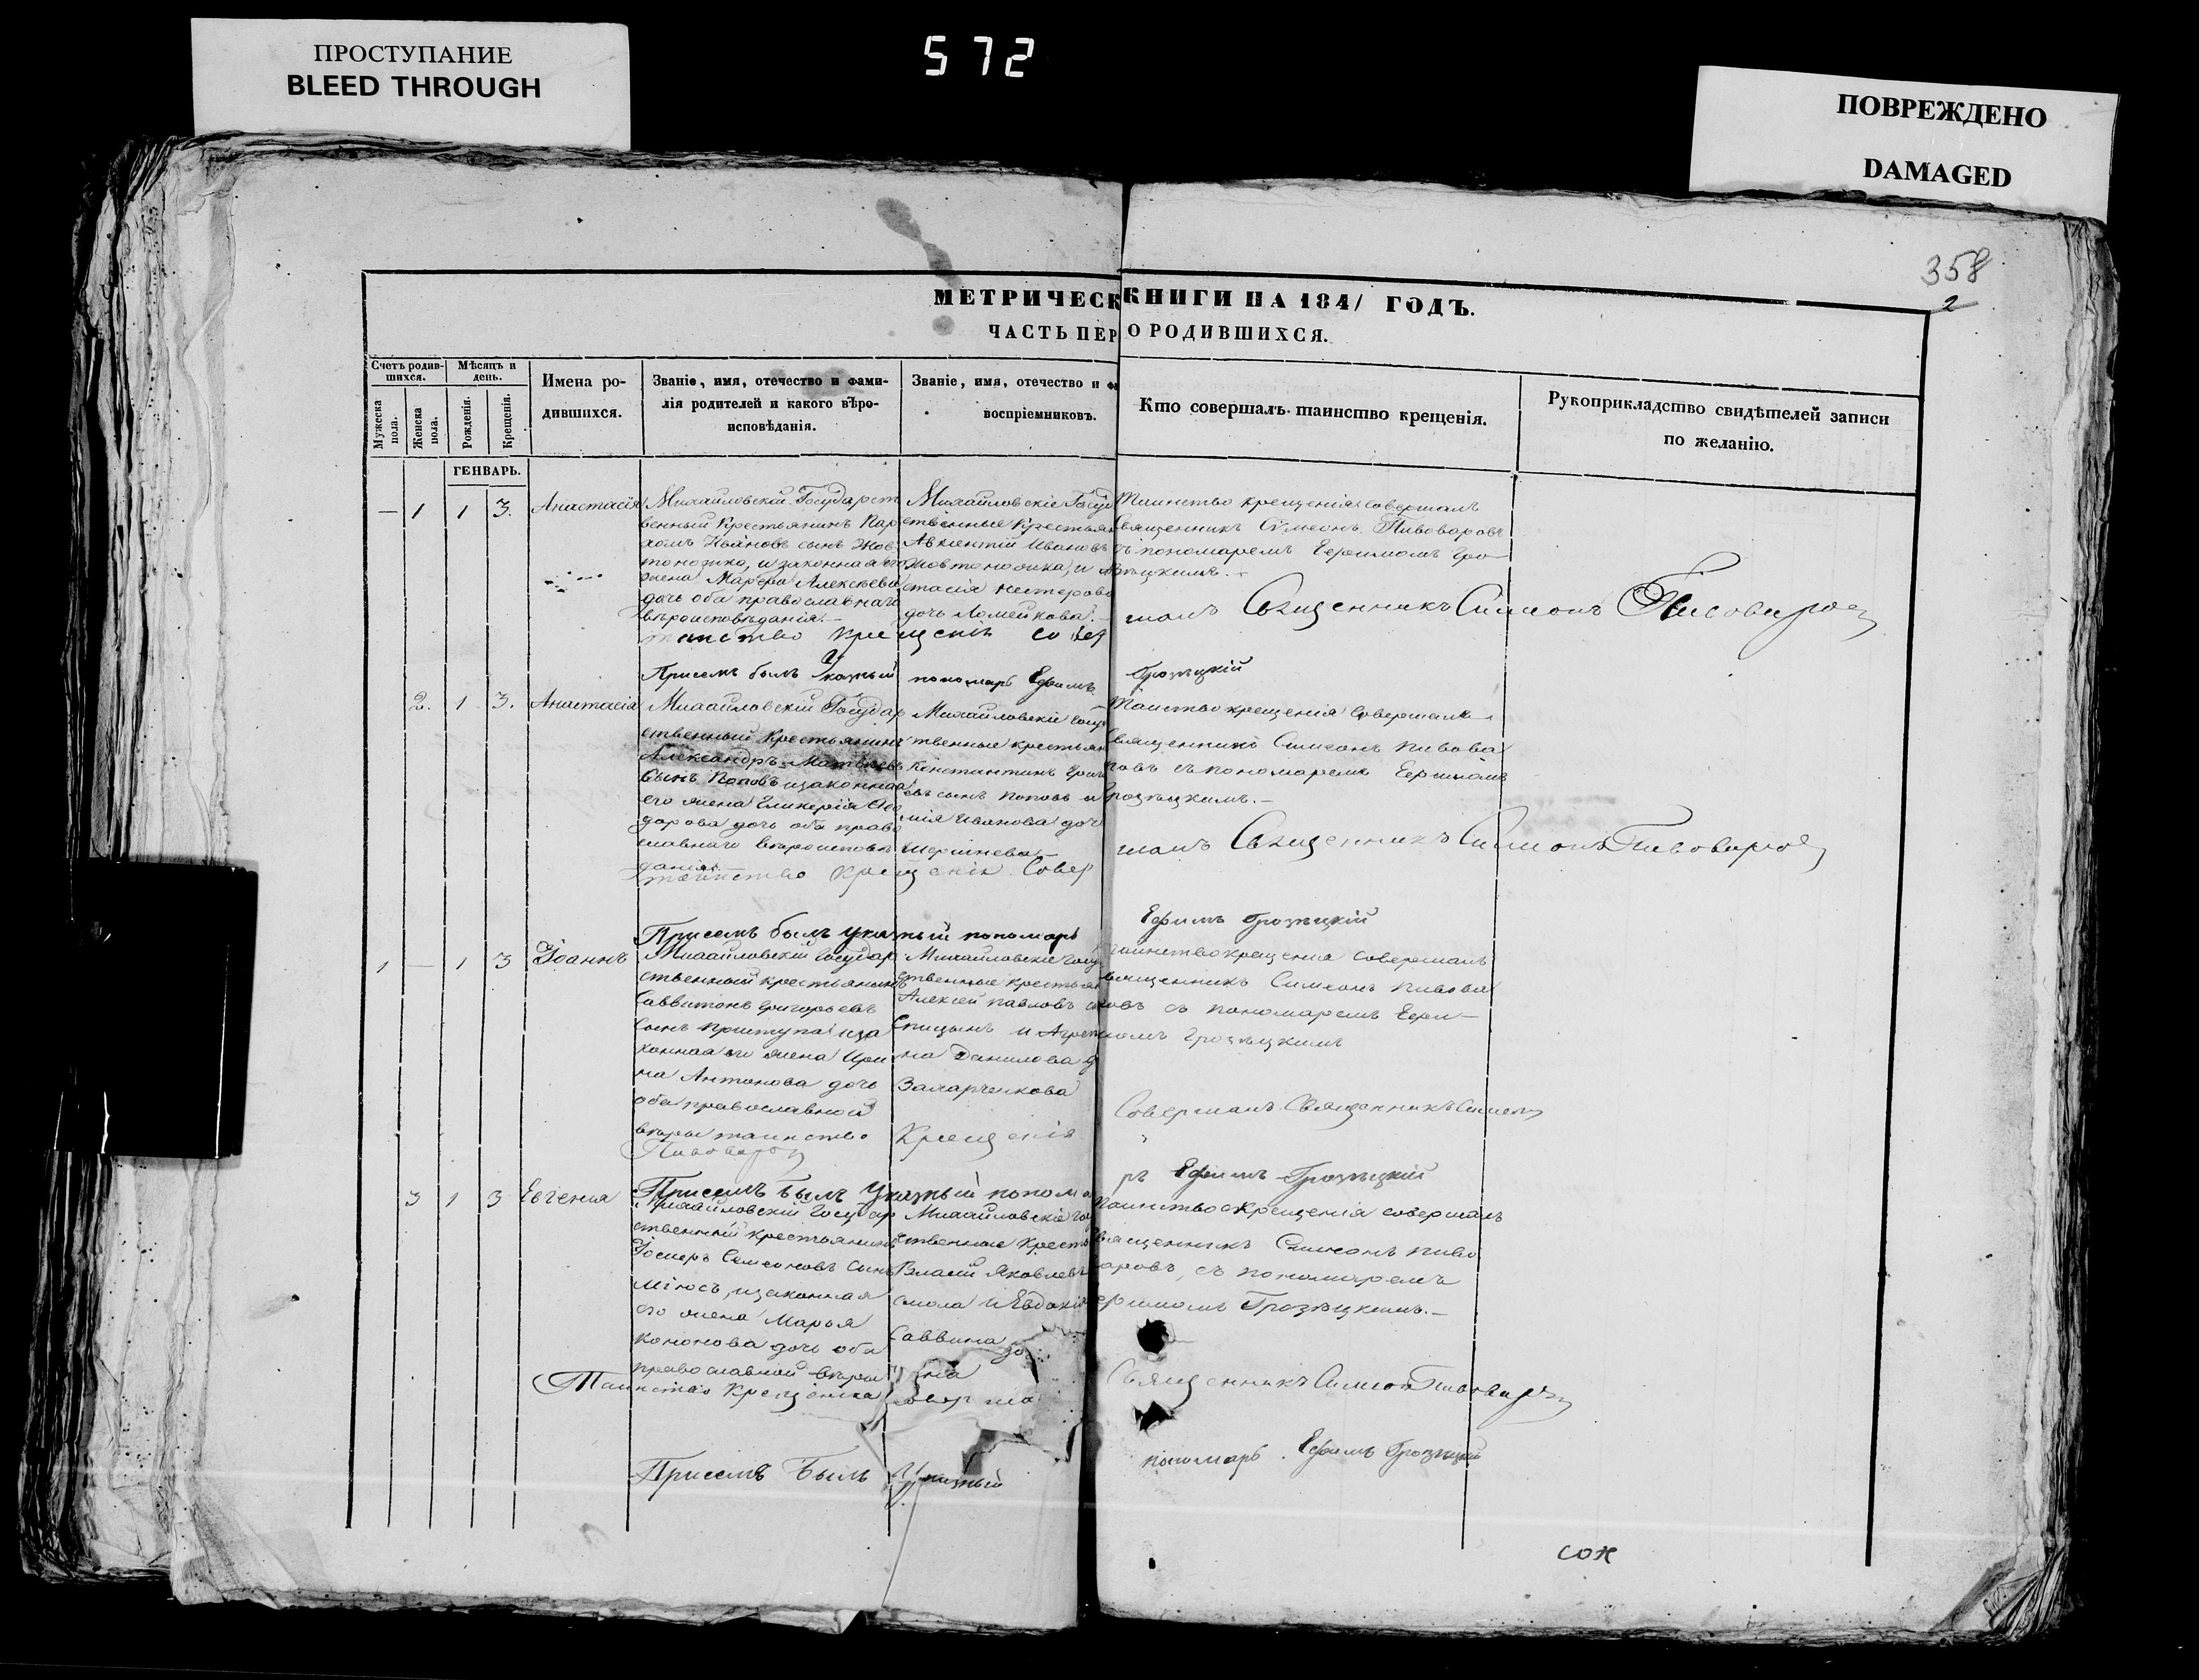 ПРОСТУПАНИЕ
BLEED THROUGH
572
ПОВРЕЖДЕНО
DAMAGED
358
2
МЕТРИЧЕСК КНИГИ НА 1841 ГОДЪ.
ЧАСТЬ ПЕР О РОДИВШИХСЯ.
Счетъ родив-
шихся.
Мужеска пола.
Женска пола.
Мѣсяцъ и
день.
Рожденія.
Крещенія.
Имена ро-
дившихся.
Званіе, имя, отечество и фами-
лія родителей и какого вѣро-
исповѣданія.
Званіе, имя, отечество и фа
воспріемниковъ.
Кто совершалъ таинство крещенія.
Рукоприкладство свидѣтелей записи
по желанію.
ГЕНВАРЬ.
— 1 1 3. Анастасія
Михайловскій Государст
венный Крестьянинъ Пар
хомъ Ивановъ сынъ Жов
тоножко, и законная его
жена Марфа Алексѣева
дочь оба православнаго
вѣроисповѣданія.—
Михайловскіе Госуд
ственные Крестьян
Авксентій Ивановъ
Жовтоножка, и А
стасія Нестерова
дочь Ломейкова.—
Таинство крещенія совершалъ
Священникъ Сѵмеонъ Пивоваровъ
съ пономаремъ Ефимомъ Гро-
зѣцкимъ.—
таинство крещенія совер шалъ Священникъ Симеонъ Пивоваровъ
Присемъ былъ Указный пономарь Ефимъ Грозѣцкій
2. 1 3. Анастасія
Михайловскій Государ
ственный Крестьянинъ
Александръ Матвѣевъ
сынъ Поповъ и законная
его жена Гликерія Ѳео
дорова дочь оба право
славнаго вѣроисповѣ
данія.—
Михайловскіе Госу
твенные крестьян
Константинъ Григ
евъ сынъ Поповъ и
мія Иванова доч
Шершнева—
Таинство крещенія совершалъ
Священникъ Симеонъ Пивова
ровъ съ пономаремъ Ефимомъ
Грозѣцкимъ.—
таинство крещенія Совер шалъ Священникъ Симеонъ Пивоваровъ
Присемъ былъ указный пономарь Ефимъ Грозѣцкій
1 — 1 3 Іоаннъ
Михайловскій Государ
ственный крестьянинъ
Савватонъ Григорьевъ
сынъ Приступа и за
конная его жена Ири
на Антонова дочь
оба православной
вѣры
Михайловскіе Госу
ственные крестьян
Алексѣй Павловъ с
Спицынъ и Агреп
на Данилова д
Захарченкова
таинство крещенія совершалъ
Священникъ Симеонъ Пивова
ровъ съ пономаремъ Ефи-
момъ Грозѣцкимъ
таинство Крещенія Совершалъ Священникъ Симеонъ
Пивоваровъ
Присемъ былъ Указный понома ръ Ефимъ Грозѣцкій
3 1 3 Евгенія
Михайловскій Государ
ственный крестьянинъ
Іосифъ Семеновъ сынъ
Міюсъ, и законная
его жена Марья
Кононова дочь оба
православной вѣры
Михайловскіе Го
ственные Кресть
Власій Яковлевъ
смола и Евдокія
Саввина до
на
Таинство Крещенія совершалъ
Священникъ Симеонъ Пиво
варовъ, съ пономаремъ
Ефимомъ Грозѣцкимъ.—
Таинство Крещенія совер ша Священникъ Симеон Пивоваровъ
Присемъ Былъ Указный пономарь Ефимъ Грозѣцкій